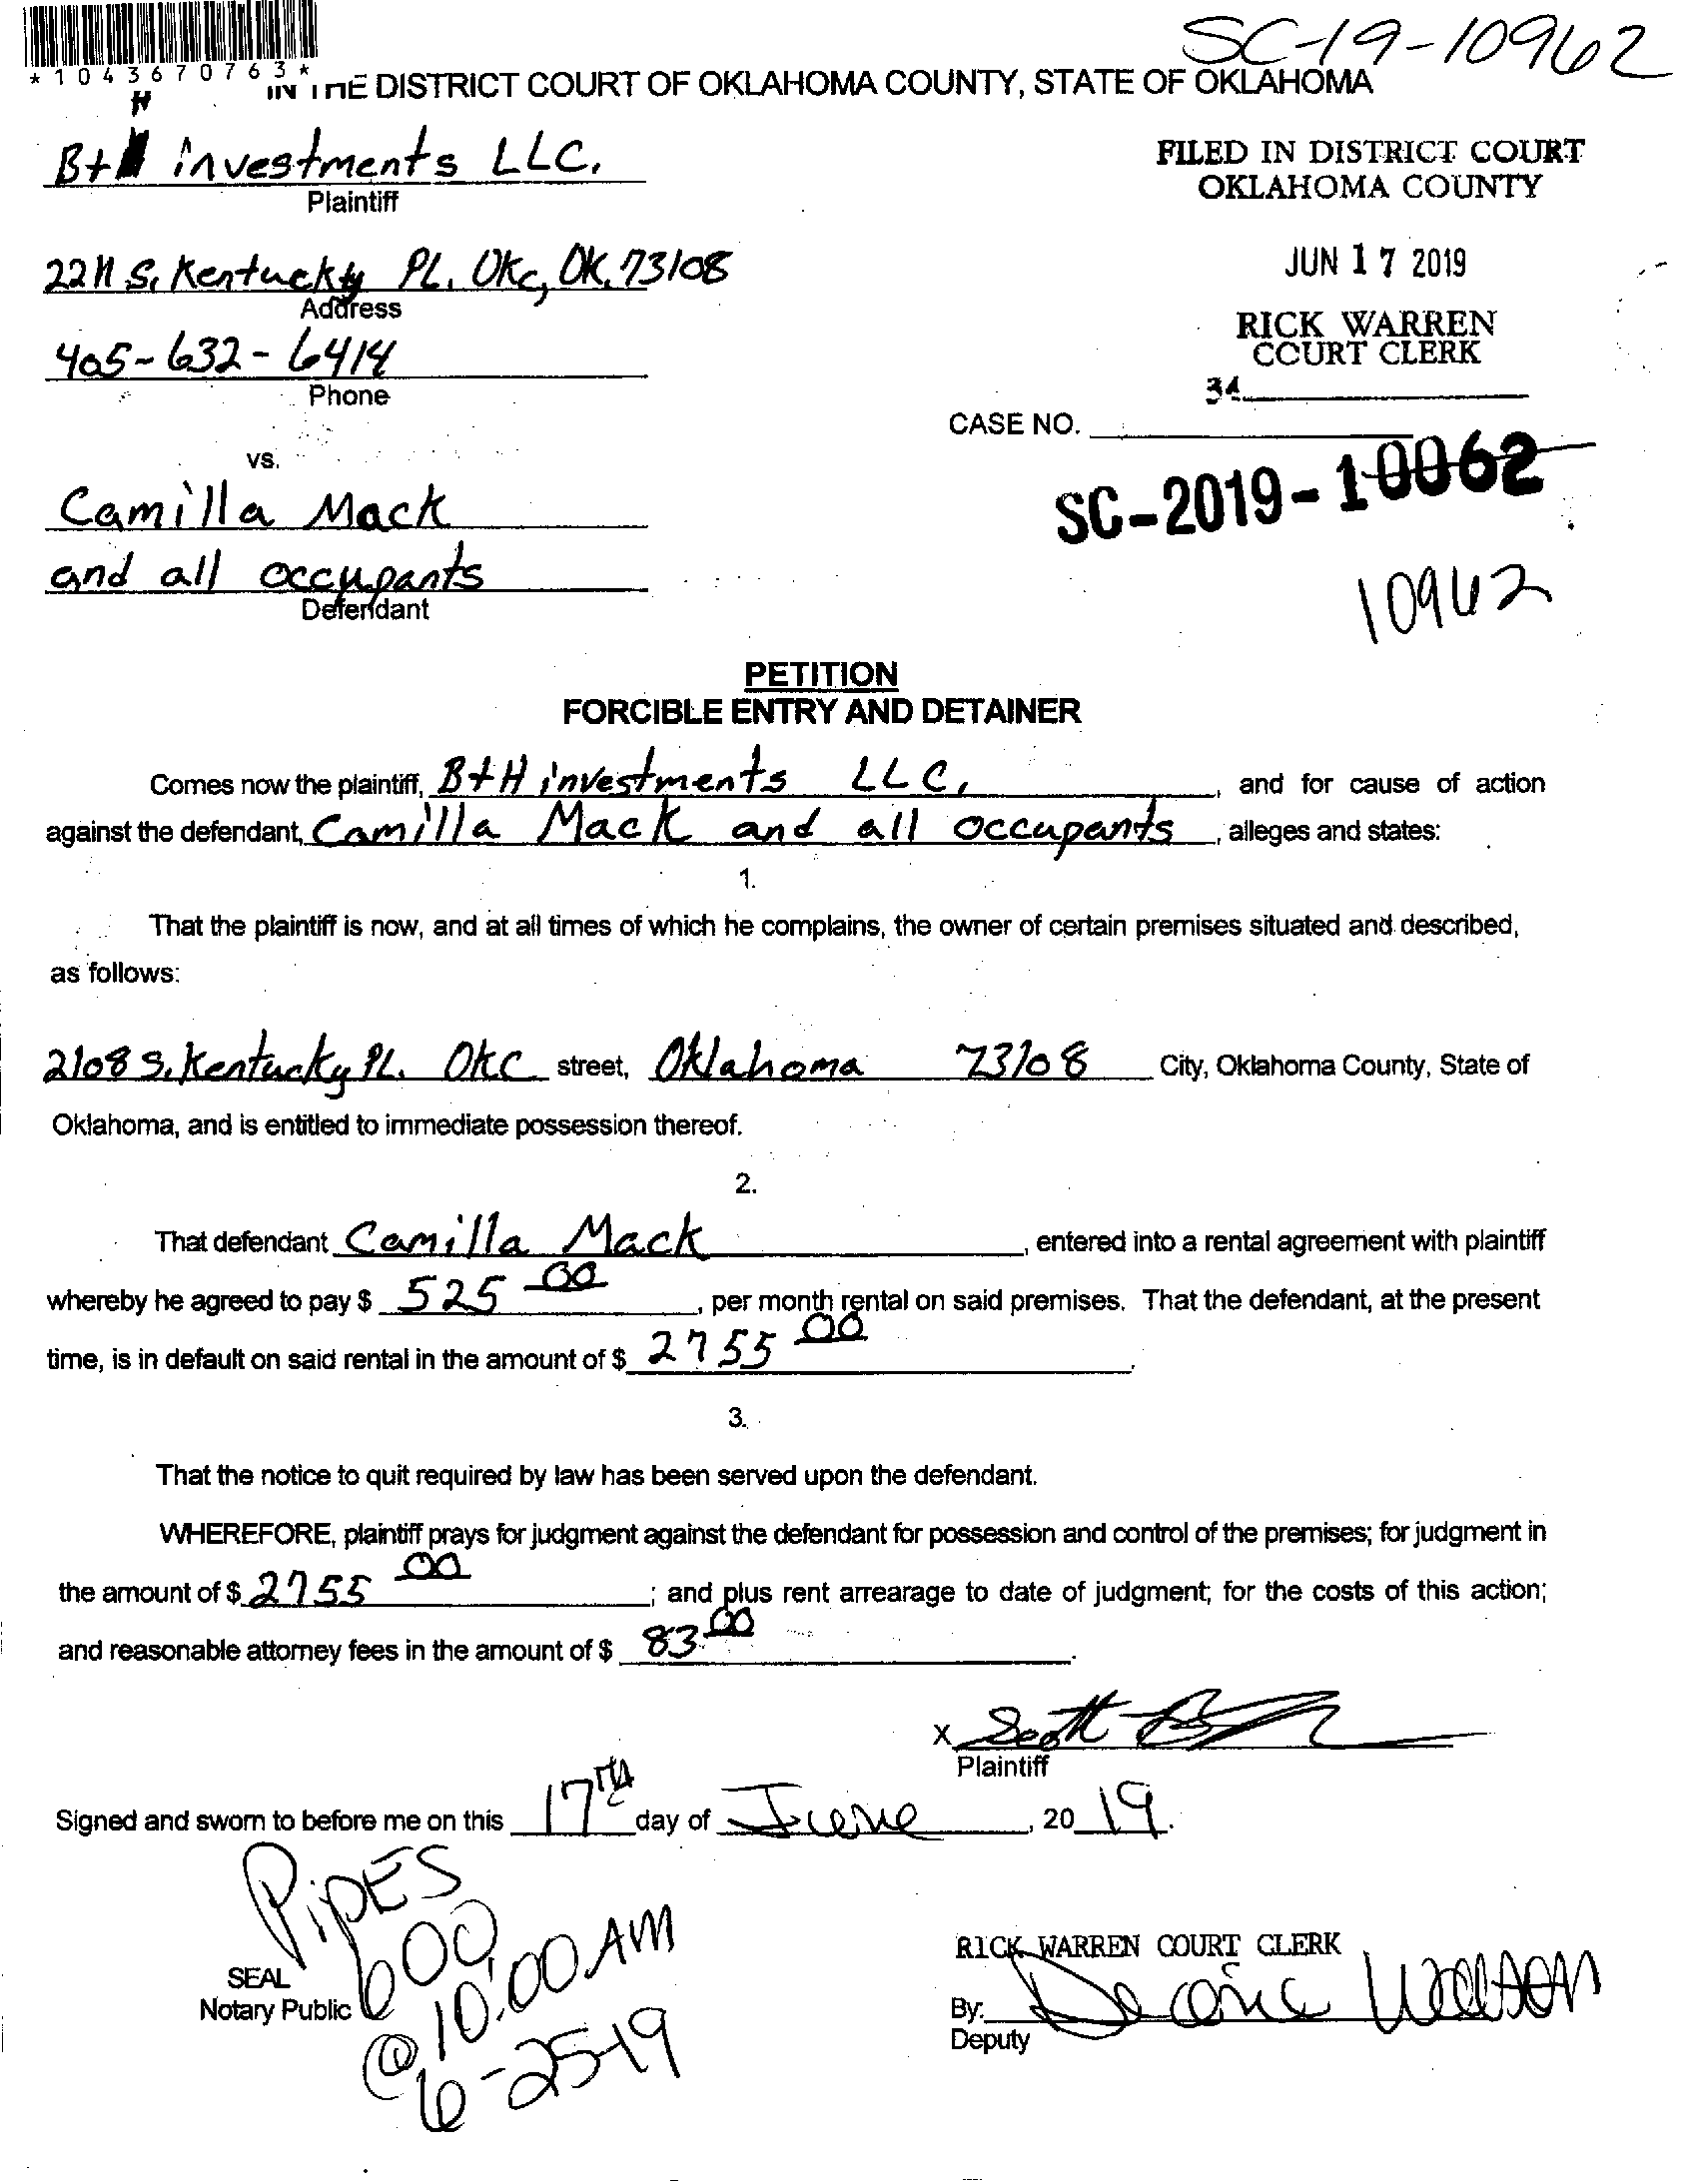 SC-19-10962
*1043670763*
IN THE DISTRICT COURT OF OKLAHOMA COUNTY, STATE OF OKLAHOMA
H
B+ investments LLC.
Plaintiff
FILED IN DISTRICT COURT
OKLAHOMA COUNTY
2211 S. Kentucky PL. OKc, OK. 73108
Address
JUN 17 2019
405-632-6414
Phone
RICK WARREN
COURT CLERK
34
CASE NO.
vs.
SC-2019-10062
Camilla Mack
and all occupants
Defendant
10962
PETITION
FORCIBLE ENTRY AND DETAINER
Comes now the plaintiff, B+H investments LLC, , and for cause of action
against the defendant, Camilla Mack and all occupants , alleges and states:
1.
That the plaintiff is now, and at all times of which he complains, the owner of certain premises situated and described,
as follows:
2108 S. Kentucky PL. OKC street, Oklahoma 73108 City, Oklahoma County, State of
Oklahoma, and is entitled to immediate possession thereof.
2.
That defendant Camilla Mack , entered into a rental agreement with plaintiff
whereby he agreed to pay $ 525 00 , per month rental on said premises. That the defendant, at the present
time, is in default on said rental in the amount of $ 2755 00 .
3.
That the notice to quit required by law has been served upon the defendant.
WHEREFORE, plaintiff prays for judgment against the defendant for possession and control of the premises; for judgment in
the amount of $ 2755 00 ; and plus rent arrearage to date of judgment; for the costs of this action;
and reasonable attorney fees in the amount of $ 83 00 .
X Scott
Plaintiff
Signed and sworn to before me on this 17TH day of June , 20 19.
PipES
600
@ 10:00 AM
6-25-19
SEAL
Notary Public
RICK WARREN COURT CLERK
By:
Deputy